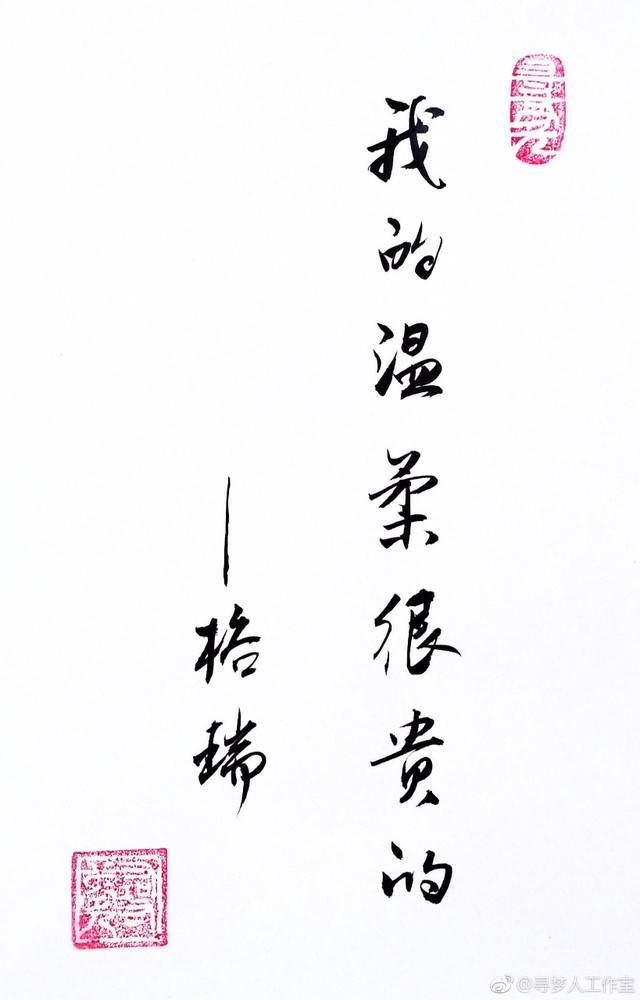 我的温柔很贵的
—格瑞
@寻梦人工作室